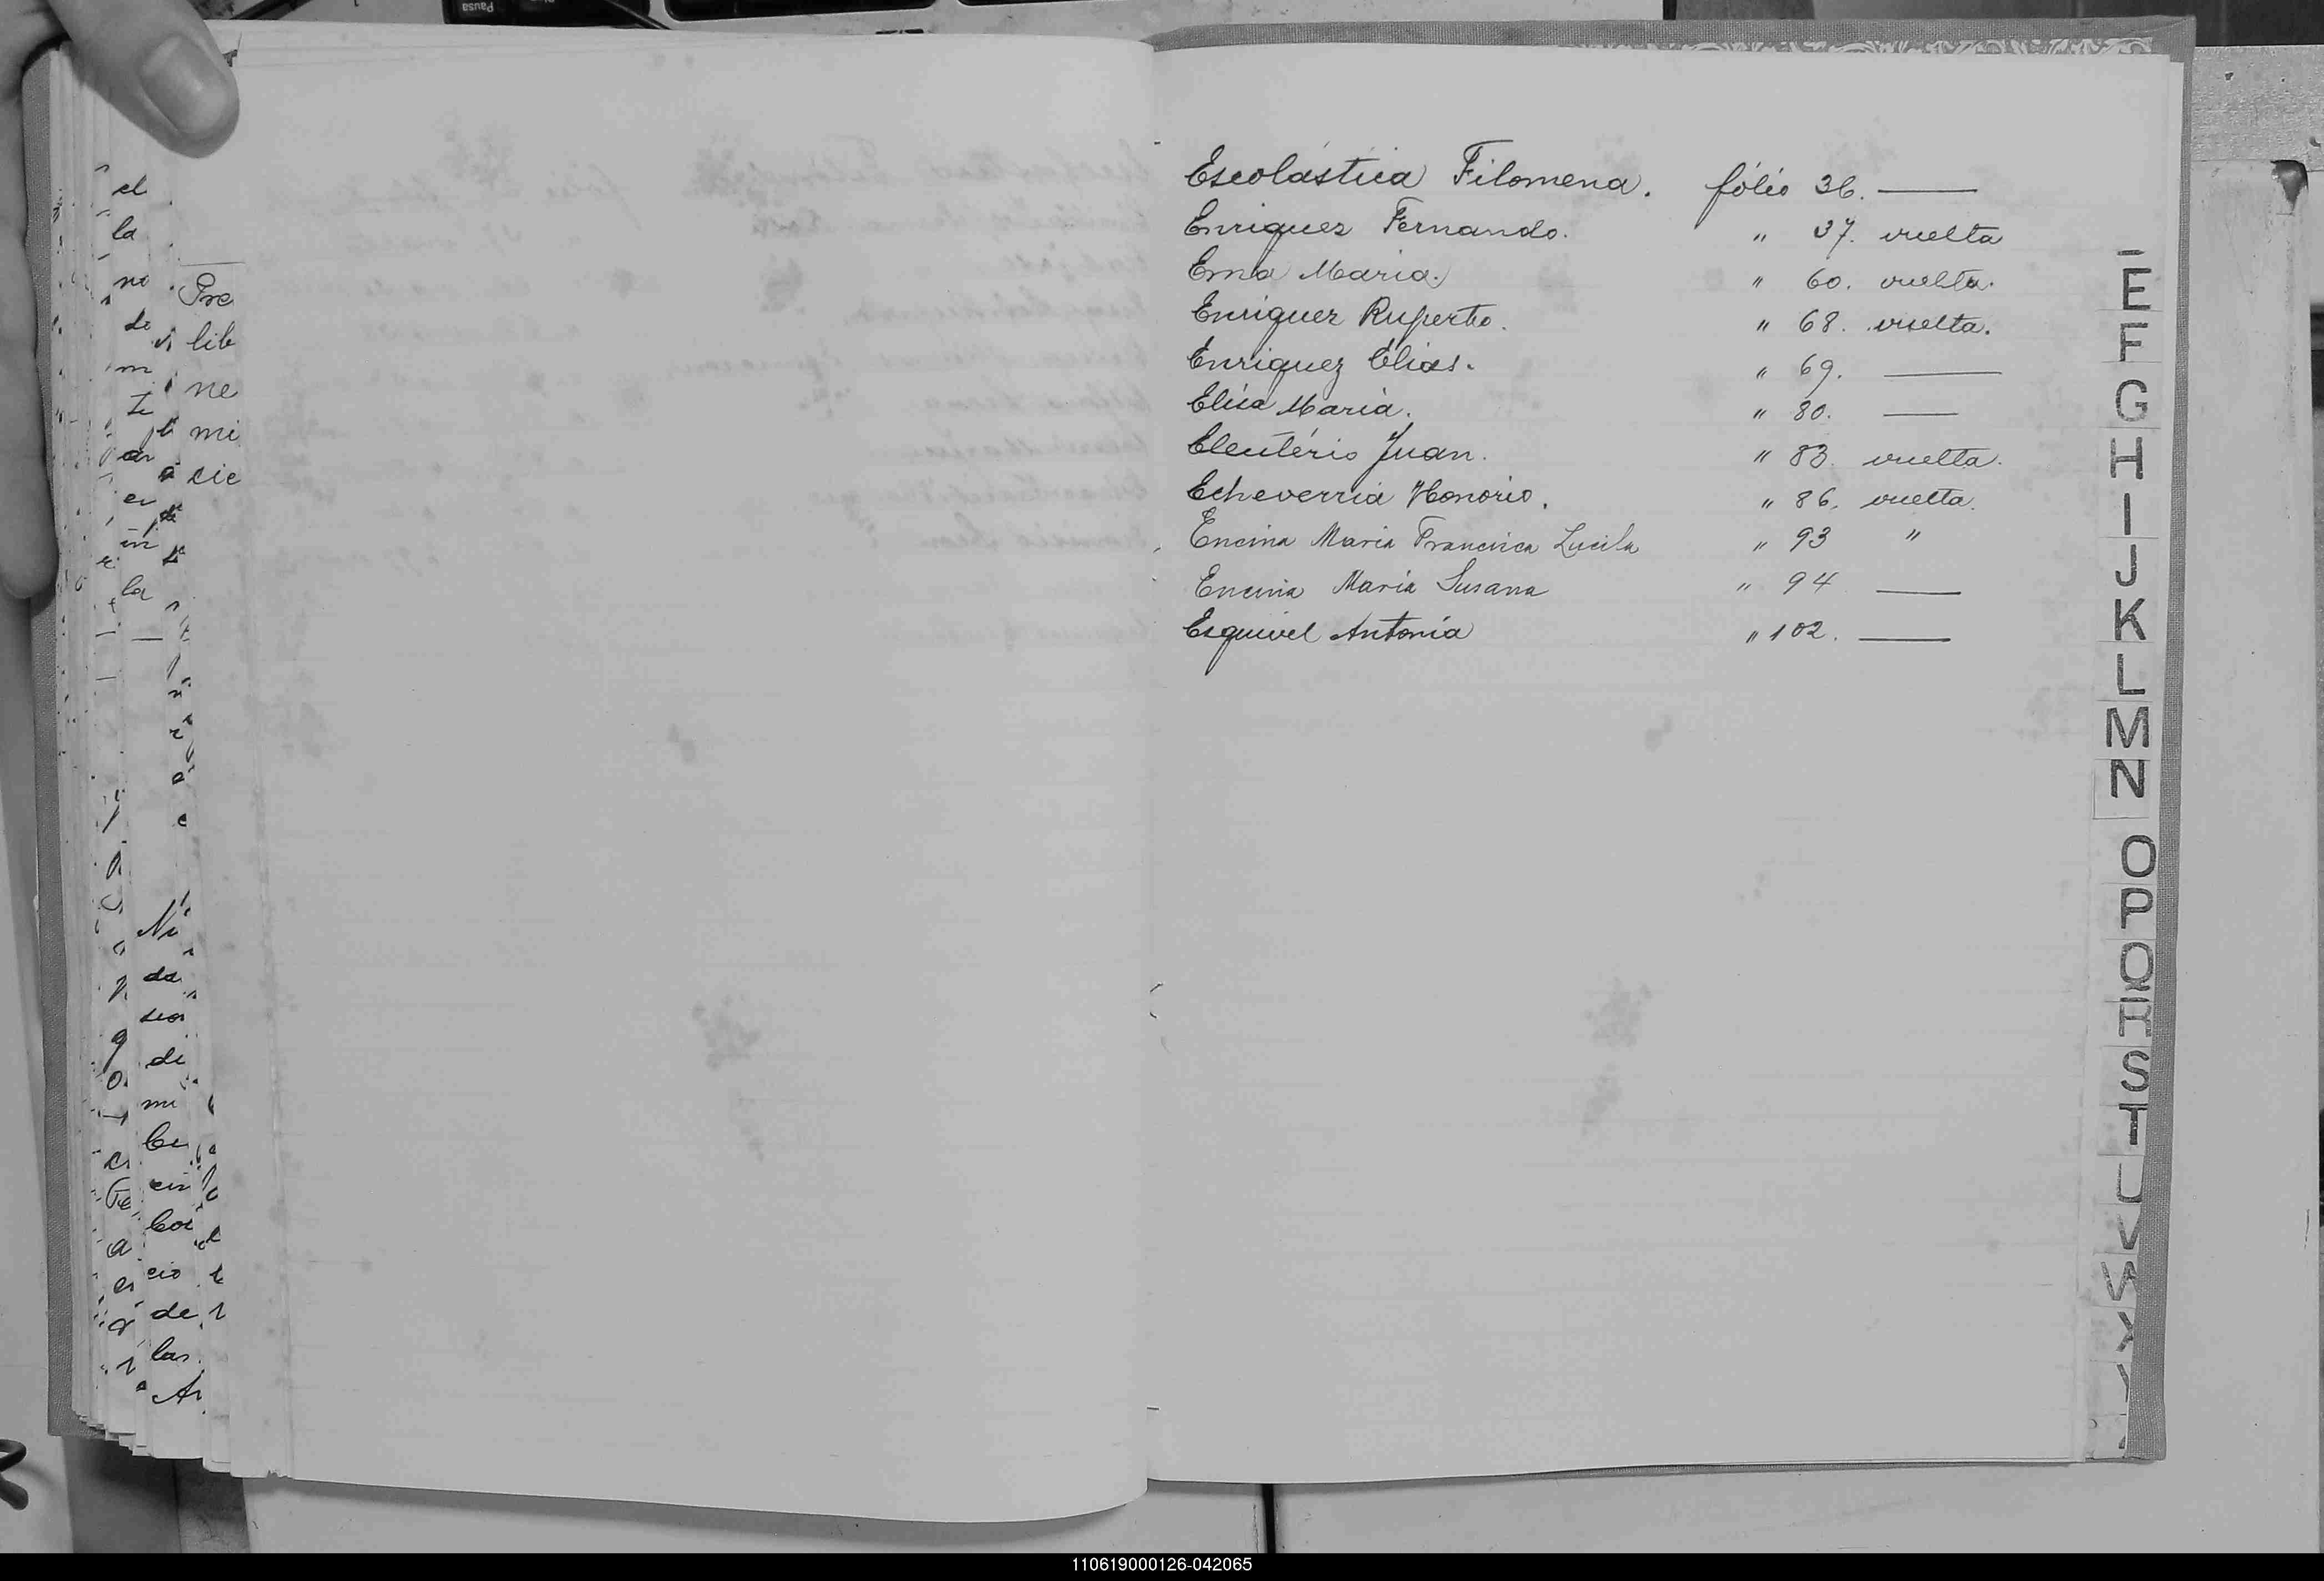 Pausa
el
la
no
de
m
Pre
lib
ne
mi
cie
la
Ni
da
di
de
las
Escolástica Filomena. fólio 36. ——
Enriquez Fernando. " 37. vuelta
Ema Maria. " 60. vuelta.
Enriquez Ruperto. " 68. vuelta.
Enriquez Elias. " 69. ——
Elisa Maria. " 80. ——
Eleutério Juan. " 83. vuelta.
Echeverria Honorio. " 86. vuelta.
Encina Maria Francisca Lucila " 93 "
Encina Maria Susana " 94 ——
Esquivel Antonia " 102. ——
E
F
G
H
I
J
K
L
M
N
O
P
Q
R
S
T
U
V
W
X
Y
110619000126-042065